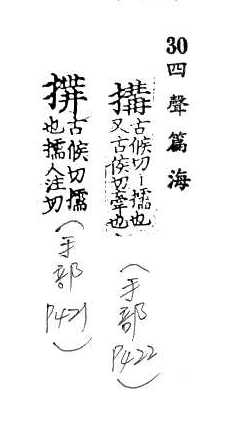 30 四聲篇海
搆
古候切丨擩也
又古侯切牽也
(手部
P422)
古候切擩
也擩人注切
(手部
P421)